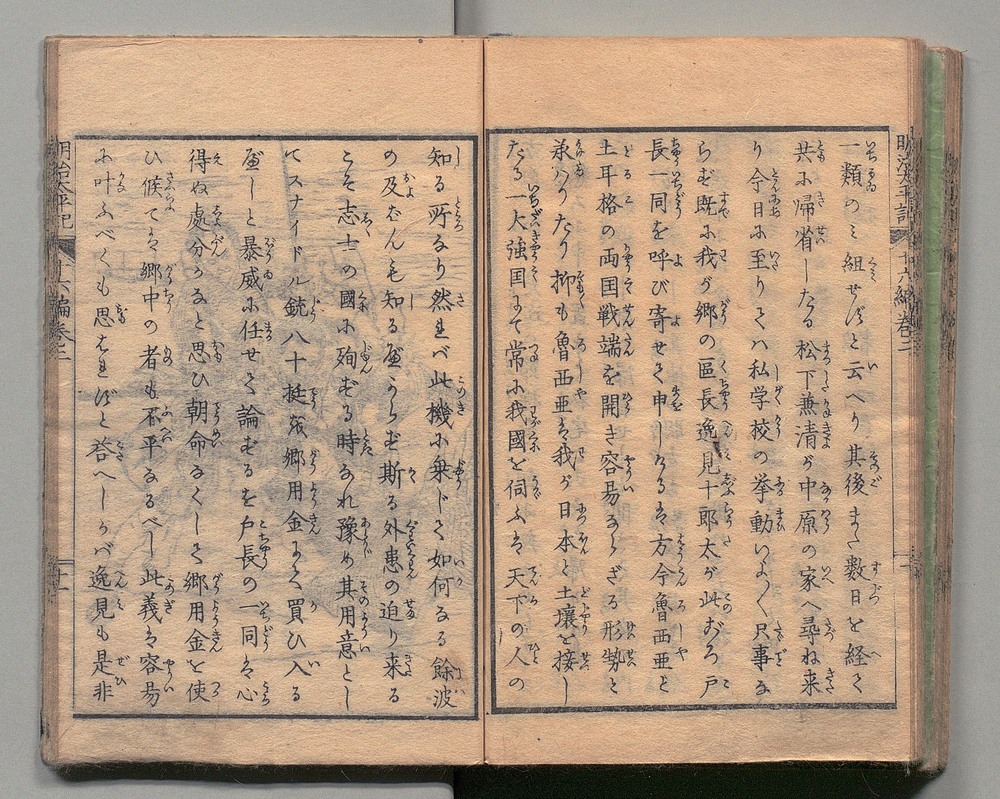 一類のミ組せずと云へり其後また数日を経て
共に帰省したる松下兼清が中原の家へ尋ね来
り今日に至りてハ私学校の挙動いよ〱只事な
らず既に我が郷の區長逸見十郎太が此ごろ戸
長一同を呼び寄せて申しけるハ方今魯西亜と
土耳格の両国戦端を開き容易ならざる形勢と
承ハりたり抑も魯西亜ハ我が日本と土壌を接し
たる一大強国にて常に我國を伺ふハ天下の人の
知る所なり然れバ此機に乗じて如何なる餘波
の及ばんも知るべからず斯る外患の迫り来る
こそ志士の國に殉ずる時なれ豫め其用意とし
てスナイドル銃八十挺を郷用金にて買ひ入る
べしと暴威に任せて論ずるを戸長の一同ハ心
得ぬ處分かなと思ひ朝命なくして郷用金を使
ひ候てハ郷中の者も不平なるべし此義ハ容易
に叶ふべくも思ハれずと答へしかバ逸見も是非
明治太平記
十六編巻二
十一